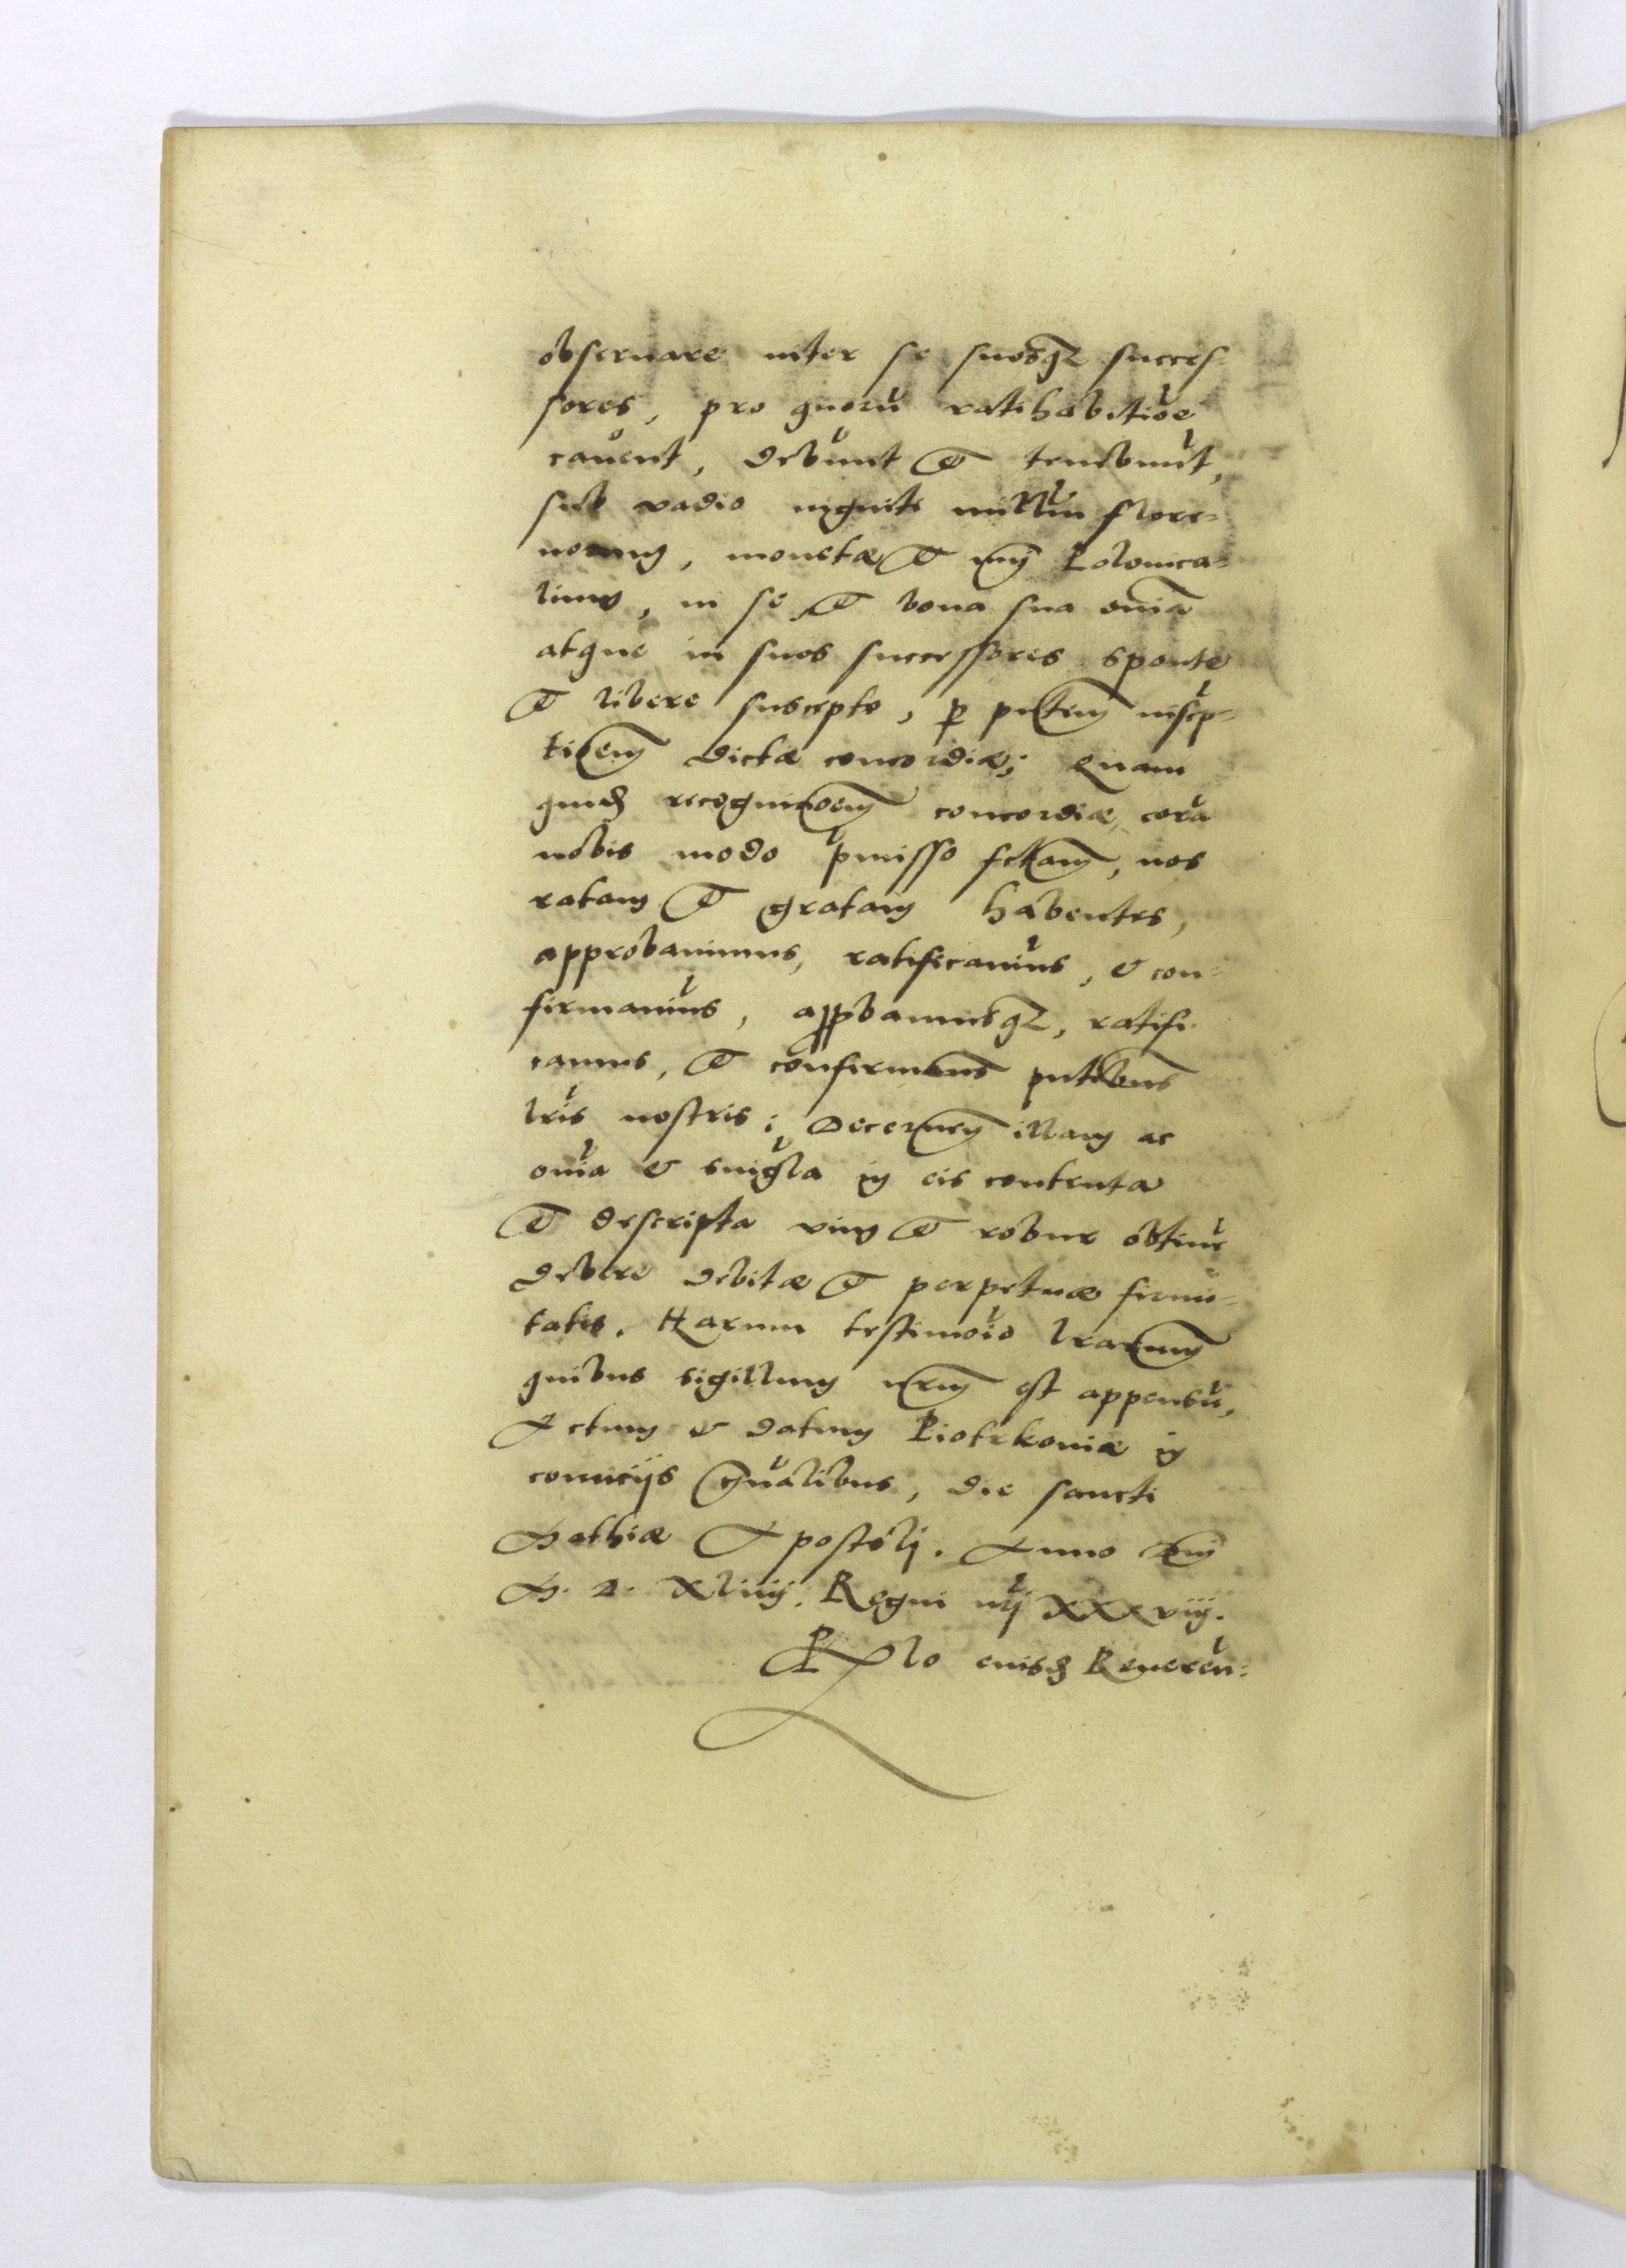 obseruare inter se suosq₃ succes-
sores, pro quorū ratihabitiōe
cauent, debunt et tenebunt̄,
sub vadio viginti milliū flore-
norum, monetæ et nrī Polonica-
lium, in se et bona sua om̄ia
atque in suos successores sponte
et libere suscepto, ꝑ pn̄tem inscp̄-
tiōem dictæ concordiæ; Quam
quid recognitiōem concordiæ, corā
nobis modo p̄misso fctam, nos
ratam et gratam habentes,
approbauimus, ratificauim̄us, & con-
firmauim̄us, apꝓbamusq₃, ratifi-
camus, et confirmams pn̄tibus
lrīs nostris; Decernen illam ac
om̄ia & singl̄a in eis contenta
et descripta vim et robur obtine̅
debere debitæ et perpetuæ firmi-
tatis. Harum testimōio lrārum
quibus sigillum nrm̄ est appensū,
Actum & datum Piotrkouiæ in
comicijs gn̄alibus, die sancti
Mathiæ Apostoli. Anno Dnī
M. D. Xliiij. Regni nrī XXXviij.
lo eiusd Reueren: